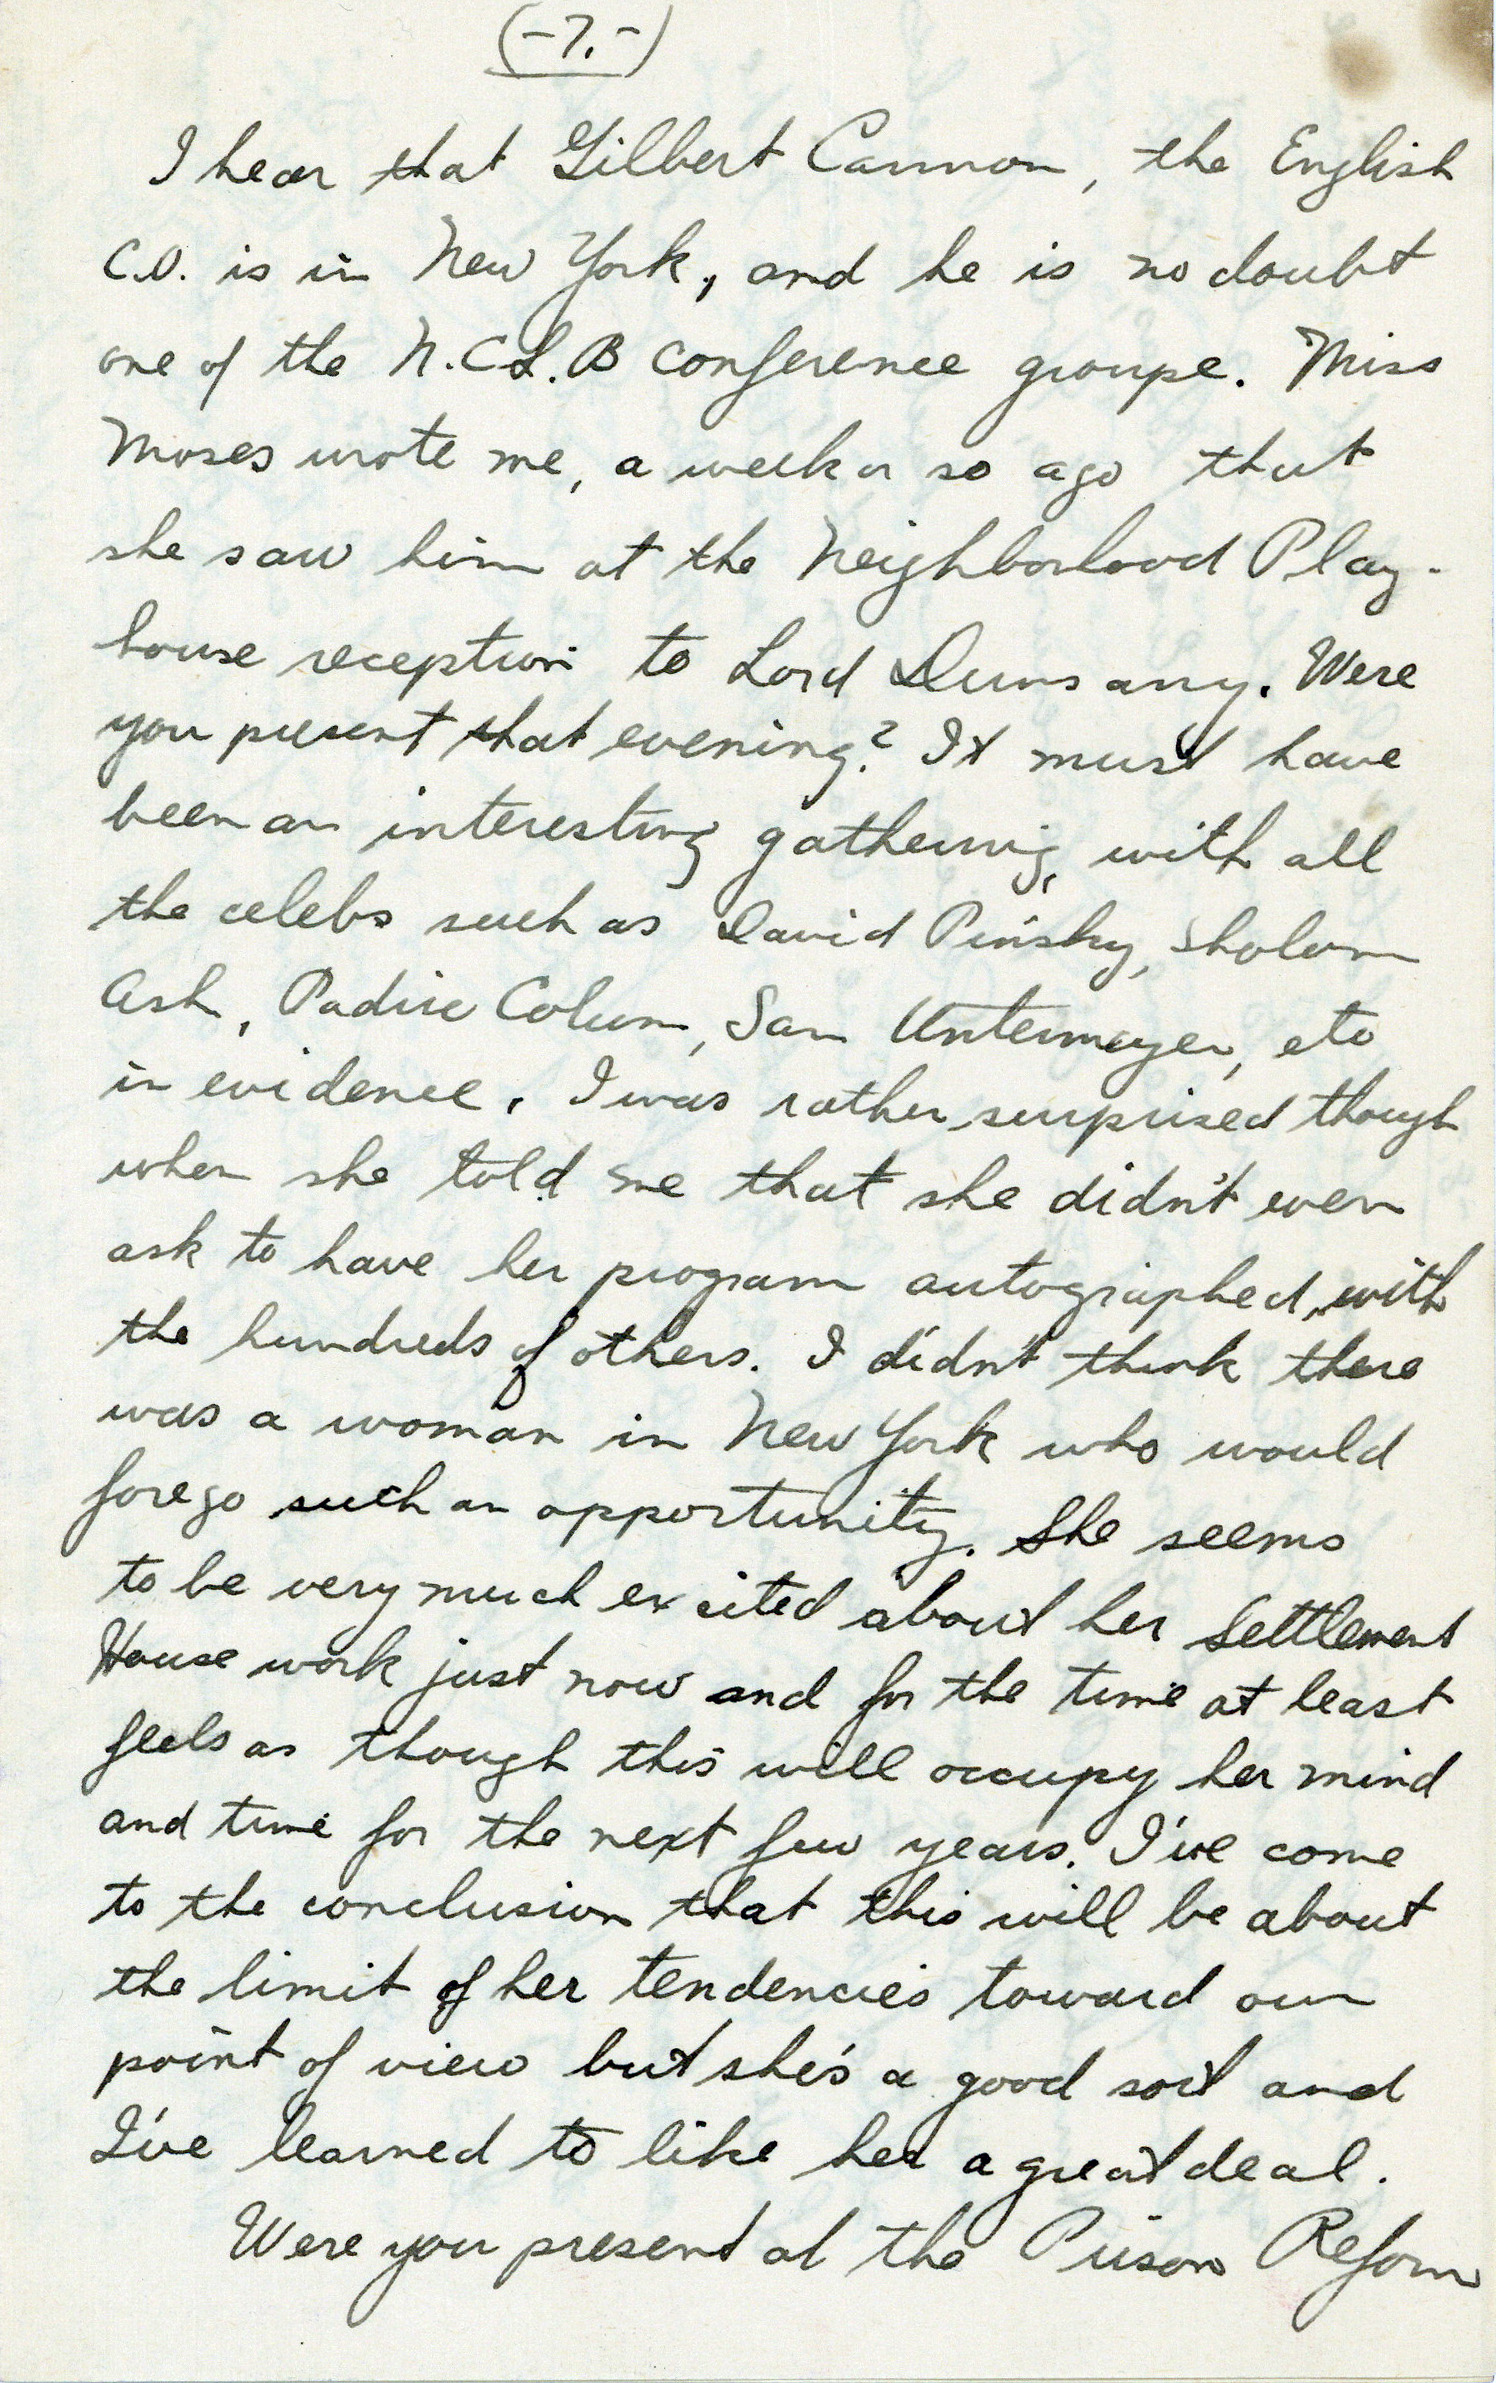 (-7.-)
I hear that Gilbert Cannon, the English
C.O. is in New York, and he is no doubt
one of the N.C.L.B conference groupe. Miss
Moses wrote me, a week or so ago that
she saw him at the Neighborhood Play-
house reception to Lord Dunsany. Were
you present that evening? It must have
been an interesting gathering, with all
the celebs such as David Pinsky, Sholom
Ash, Padric Colum, Sam Untermeyer, etc
in evidence. I was rather surprised though
when she told me that she didn't even
ask to have her program autographed, with
the hundreds of others. I didn't think there
was a woman in New York who would
forego such an opportunity. She seems
to be very much excited about her Settlement
House work just now and for the time at least
feels as though this will occupy her mind
and time for the next few years. I've come
to the conclusion that this will be about
the limit of her tendencies toward our
point of view but she's a good sort and
I've learned to like her a great deal.
Were you present at the Prison Reform